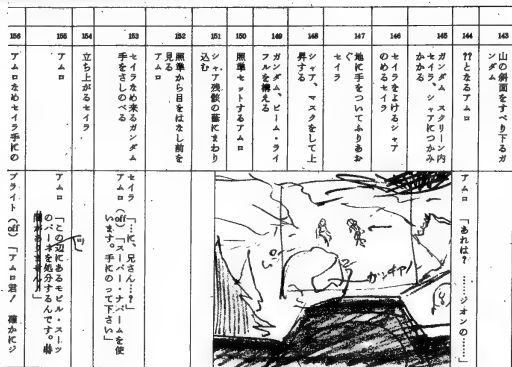 143
山の斜面をすべり下るガ
ンダム
144
??となるアムロ
アムロ 「あれは? ……ジオンの……」
145
ガンダム スクリーン内
セイラ、シャアにつかみ
かかる
146
セイラをよけるシャア
のめるセイラ
147
地に手をついてふりあお
ぐ
セイラ
148
シャア、マスクをして上
昇する
149
ガンダム、ビーム・ライ
フルを構える
150
照準セットするアムロ
151
シャア残骸の蔭にまわり
込む
152
照準から目をはなし前を
見る
アムロ
153
セイラなめ来るガンダム
手をさしのべる
セイラ 「…に、兄さん…?」
アムロ(off)「スーパー・ナパームを使
います。手にのって下さい」
154
立ち上がるセイラ
155
アムロ
アムロ 「この辺にあるモビル・スーツ
のパーネを処分するんです。
156
アムロなめセイラ手にの
ブライト(off)「アムロ君! 確かにジ